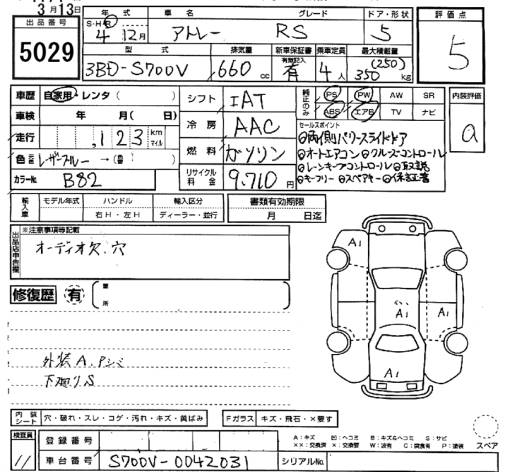 3月13日
出品番号
5029
S・H・R 年 車名 グレード ドア・形状
4 12月 アトレー RS 5
型式 排気量 新車保証書 乗車定員 最大積載量
3BD-S700V 660 cc 有 4人 (250) 350 kg
評価点
5
車歴 自家用・レンタ( )
車検 年 月( 日)
走行 ,123 km マイル
色 レーザーブルー→( )
カラーNo. B82
シフト IAT
冷房 AAC
燃料 ガソリン
リサイクル料金 9,710 円
純正のみ PS PW AW SR
ABS エアB TV ナビ
内装評価
a
セールスポイント
◎両側パワースライドドア
◎オートエアコン ◎クルーズコントロール
◎レーンキープコントロール ◎取説
◎キーフリー ◎スペアキー ◎保証書
輸入車 モデル年式 ハンドル 輸入区分 書類有効期限
年 右H・左H ディーラー・並行 月 日迄
出品店申告欄
※注意事項等記載
オーディオ欠.穴
修復歴 有 箇所
外装A,Pシミ
下廻りS
A1
A1
A1
A1
内装シート 穴・破れ・スレ・コゲ・汚れ・キズ・黄ばみ Fガラス キズ・飛石・×要す
検査員
11
登録番号
車台番号 S700V-0042031 シリアルNo.
A:キズ B:キズ&ヘコミ S:サビ
××:交換済 ×:交換要 W:波有 C:腐食有 P:塗装 スペア